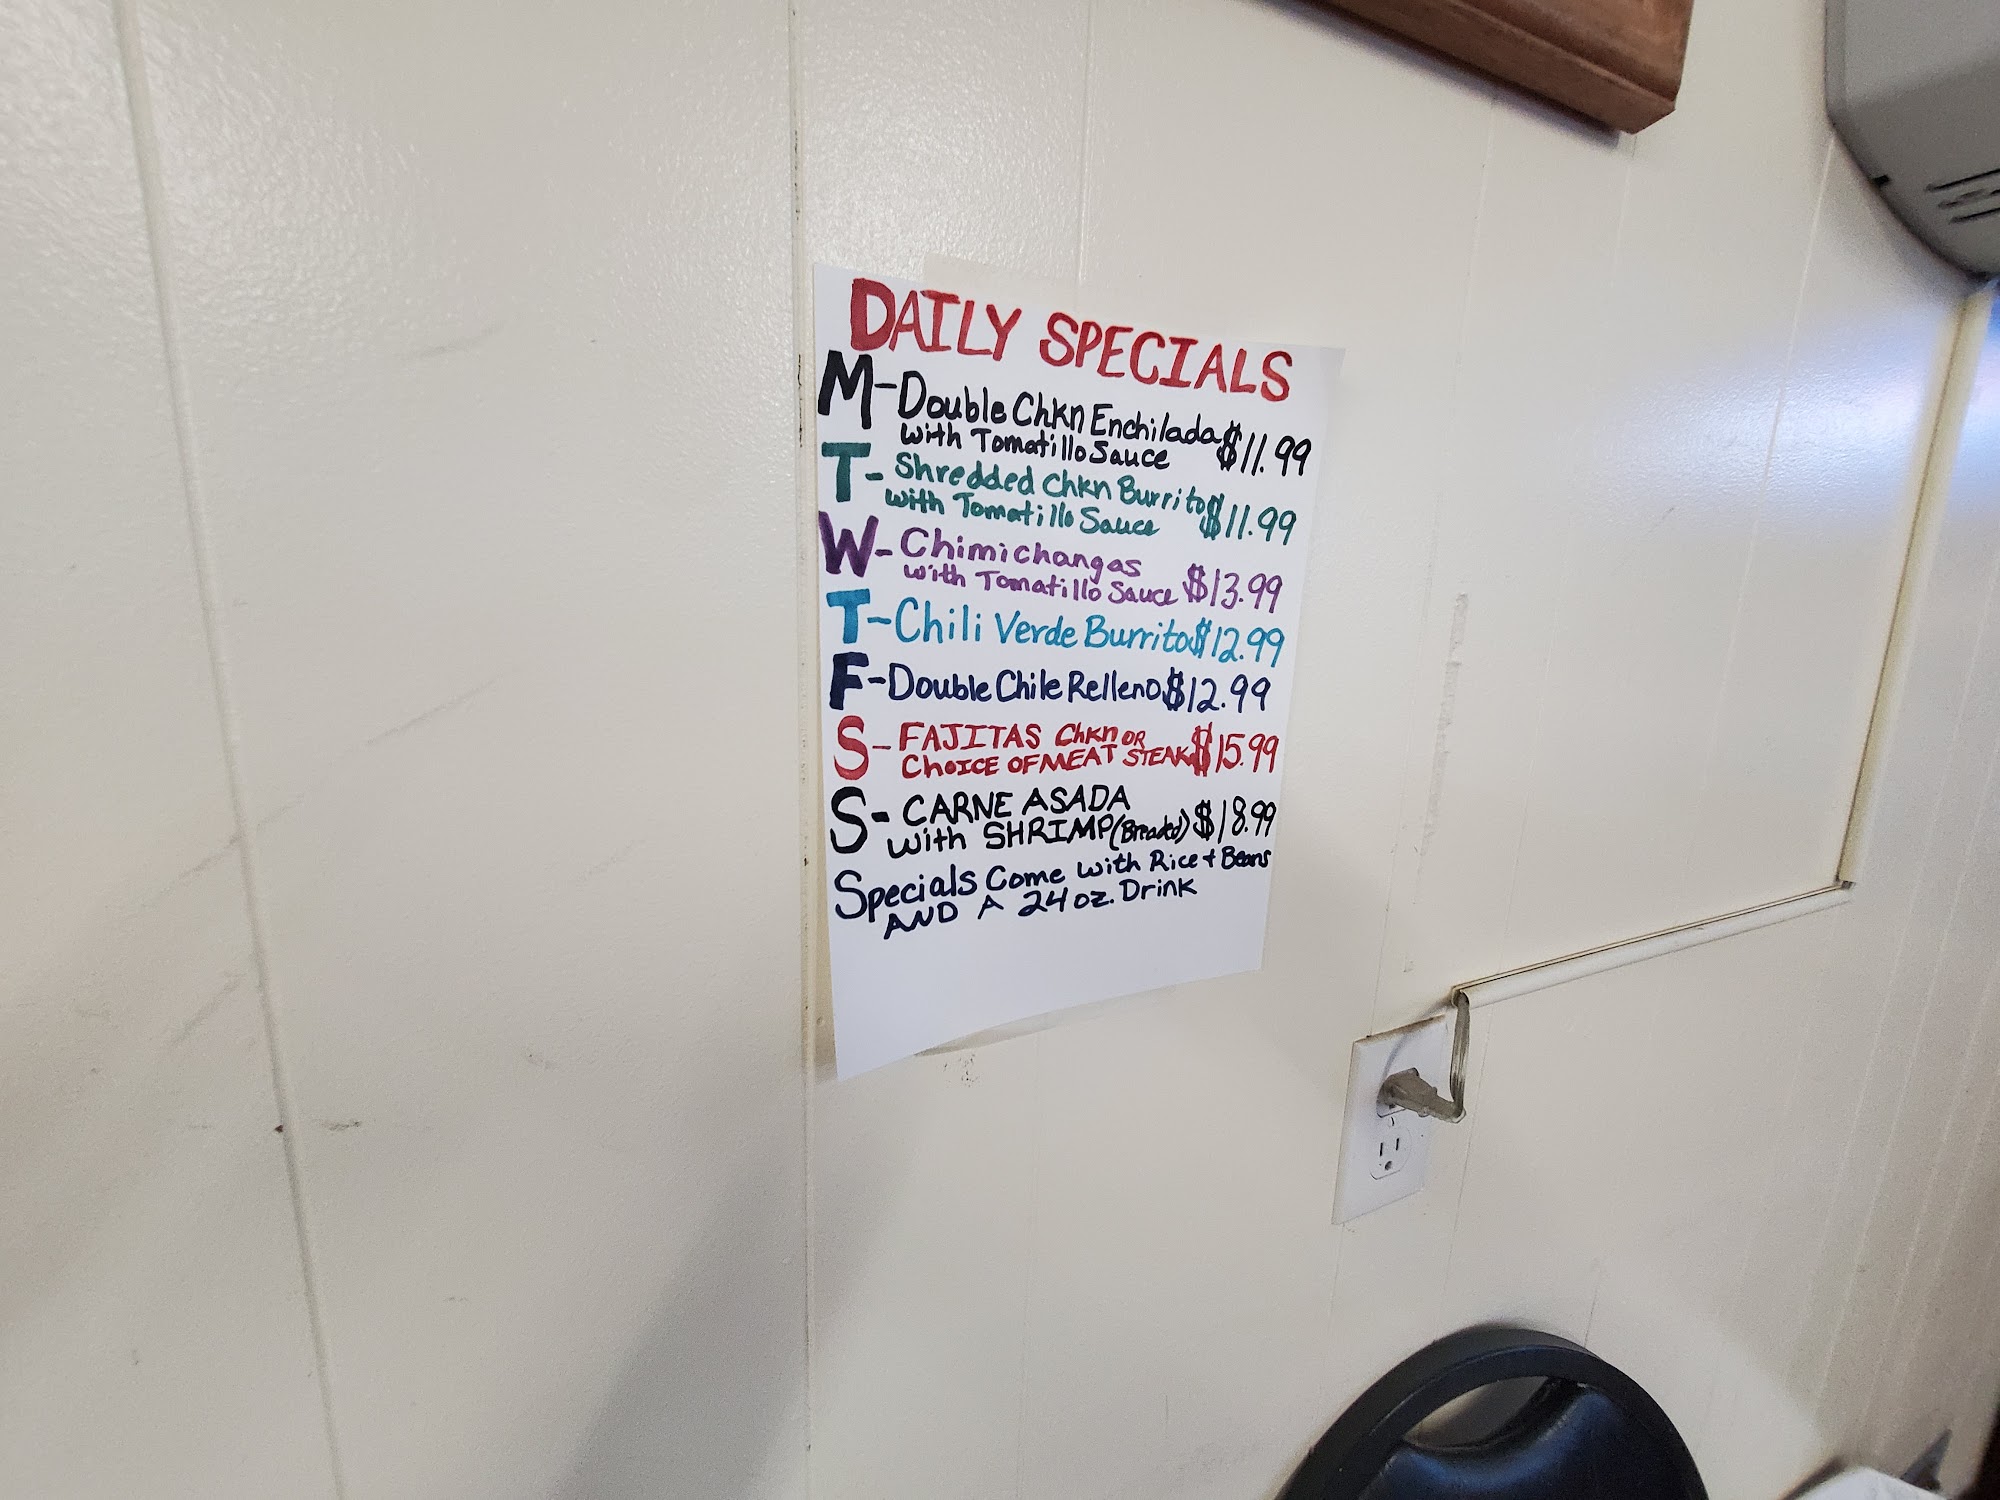 DAILY SPECIALS
M-Double Chkn Enchilada $11.99
with Tomatillo Sauce
T- Shredded Chkn Burrito $11.99
with Tomatillo Sauce
W- Chimichangas
with Tomatillo Sauce $13.99
T-Chili Verde Burrito $12.99
F-Double Chile Relleno $12.99
S- FAJITAS Chkn OR
CHOICE OF MEAT STEAK $15.99
S- CARNE ASADA
with SHRIMP (Breaded) $18.99
Specials Come with Rice + Beans
AND A 24 oz. Drink